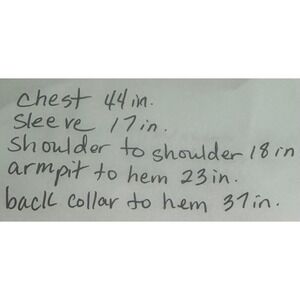 chest 44 in.
sleeve 17 in.
shoulder to shoulder 18 in
armpit to hem 23 in.
back collar to hem 37 in.